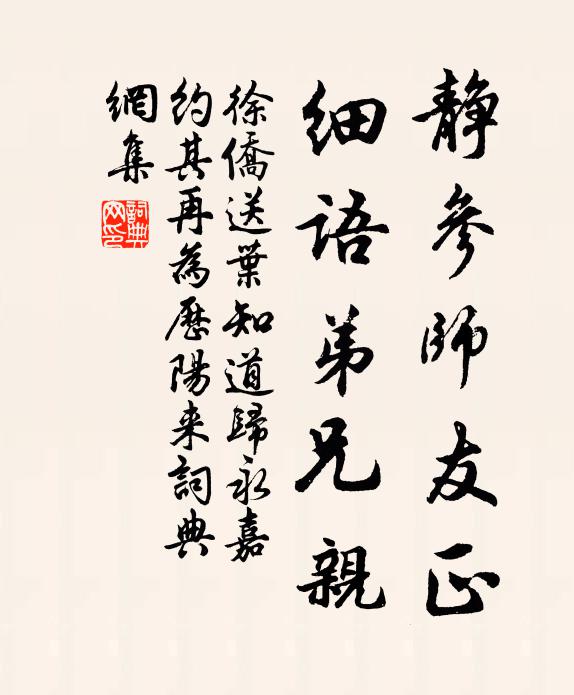 静參師友正
细語弟兄親
徐僑送葉知道歸永嘉
約其再為歷陽来詞典
網集
詞典
网印